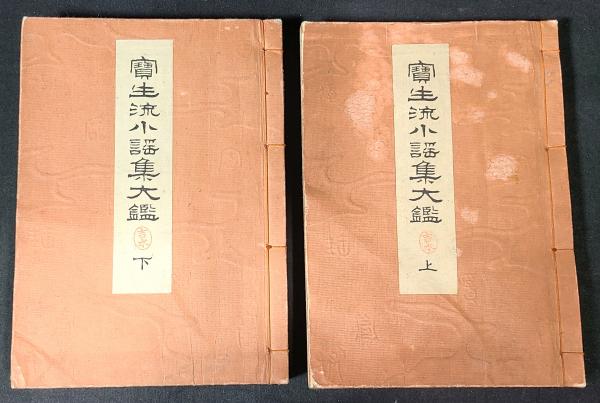 寶生流小謠集大鑑
上
寶生流小謠集大鑑
下